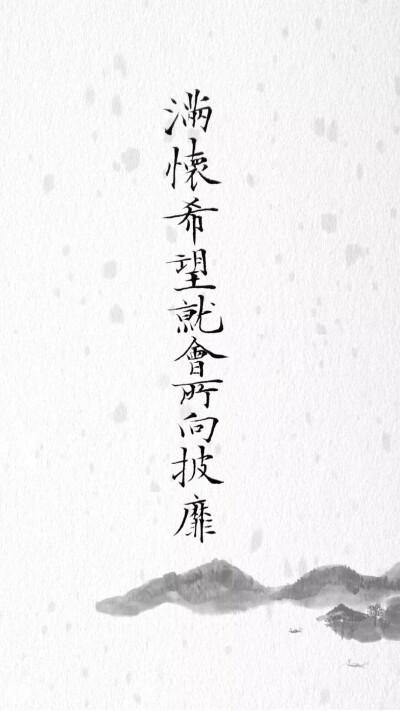 满懷希望就會所向披靡